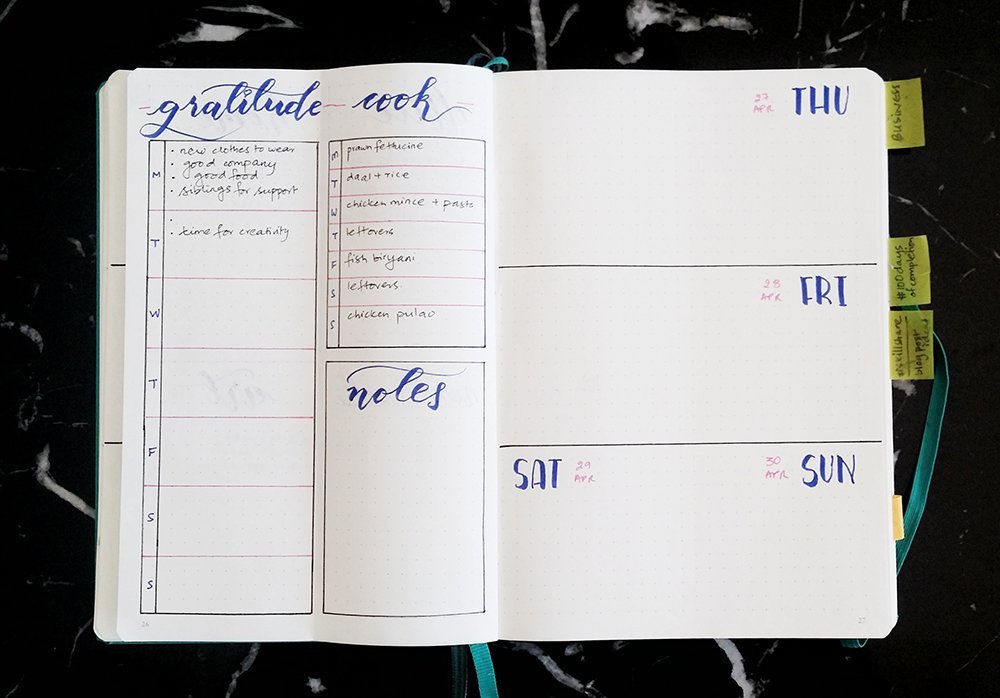 gratitude
M
· new clothes to wear
· good company
· good food
· siblings for support
T
·
· time for creativity
W
T
F
S
S
26
cook
M prawn fettucine
T daal + rice
W chicken mince + pasta
T leftovers
F fish biryani
S leftovers
S chicken pulao
notes
27 APR THU
28 APR FRI
SAT 29 APR
30 APR SUN
27
BUSINESS
#100days
of completion
#skillshare
blog post
ideas